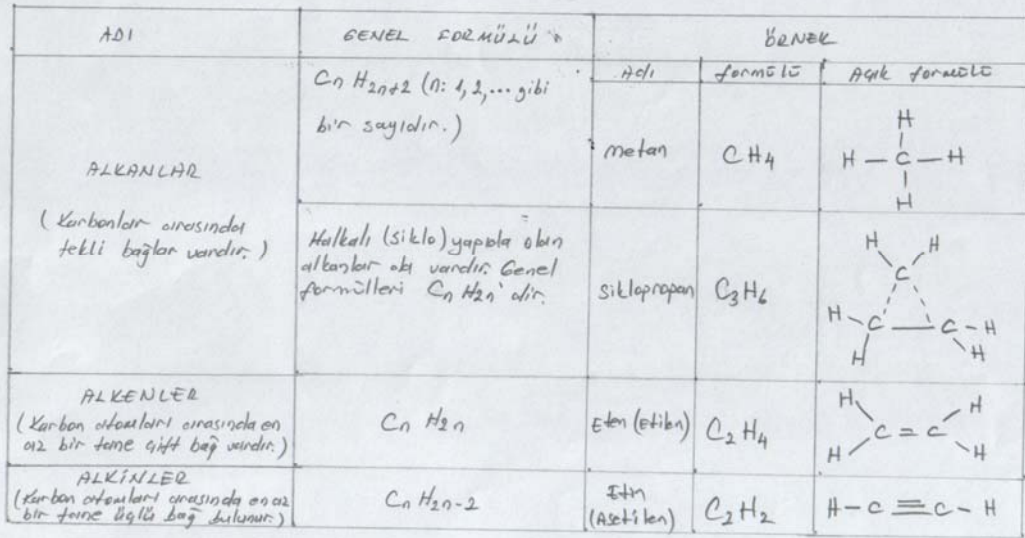 ADI
GENEL FORMÜLÜ
ÖRNEK
Adı
formülü
Açık formülü
ALKANLAR
(Karbonlar arasında
tekli bağlar vardır.)
CnH2n+2 (n: 1, 2, ... gibi
bir sayıdır.)
metan
CH4
H
H — C — H
H
Halkalı (siklo) yapıda olan
alkanlar da vardır. Genel
formülleri CnH2n' dir.
siklopropan
C3H6
H H
C
H C — C — H
H H
ALKENLER
(Karbon atomları arasında en
az bir tane çift bağ vardır.)
CnH2n
Eten (Etilen)
C2H4
H H
C = C
H H
ALKİNLER
(Karbon atomları arasında en az
bir tane üçlü bağ bulunur.)
CnH2n-2
Etin
(Asetilen)
C2H2
H — C ≡ C — H